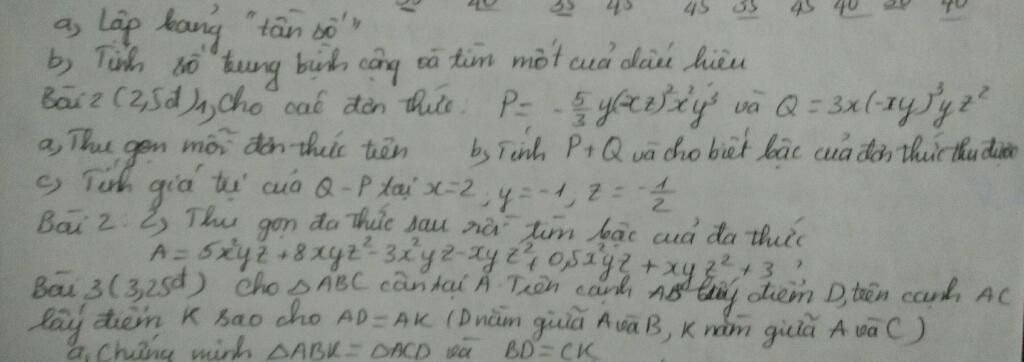 40 35 45 45 35 45 40 20 40
a, Lập bảng "tần số"
b, Tính số trung bình cộng và tìm mốt của dấu hiệu
Bài 2 (2,5đ) 1, Cho các đơn thức: P = -5/3 y(xz)²x²y³ và Q = 3x(-xy)³yz²
a, Thu gọn mỗi đơn thức trên b, Tính P+Q và cho biết bậc của đơn thức thu được
c, Tính giá trị của Q-P tại x=2, y=-1, z = -1/2
Bài 2: 2, Thu gọn đa thức sau rồi tìm bậc của đa thức
A = 5x²yz + 8xyz² - 3x²yz - xyz² + 0,5x²yz + xyz² + 3
Bài 3 (3,25đ) Cho △ABC cân tại A. Trên cạnh AB lấy điểm D, trên cạnh AC
lấy điểm K sao cho AD = AK (D nằm giữa A và B, K nằm giữa A và C)
a, Chứng minh △ABK = △ACD và BD = CK